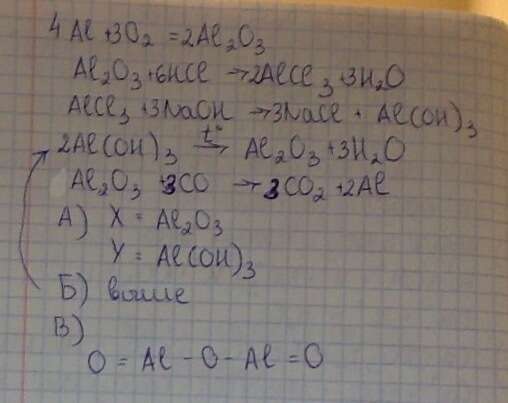 4Al + 3O₂ = 2Al₂O₃
Al₂O₃ + 6HCl → 2AlCl₃ + 3H₂O
AlCl₃ + 3NaOH → 3NaCl + Al(OH)₃
2Al(OH)₃ t° → Al₂O₃ + 3H₂O
Al₂O₃ + 3CO → 3CO₂ + 2Al
А) X = Al₂O₃
Y = Al(OH)₃
Б) выше
В)
O = Al - O - Al = O